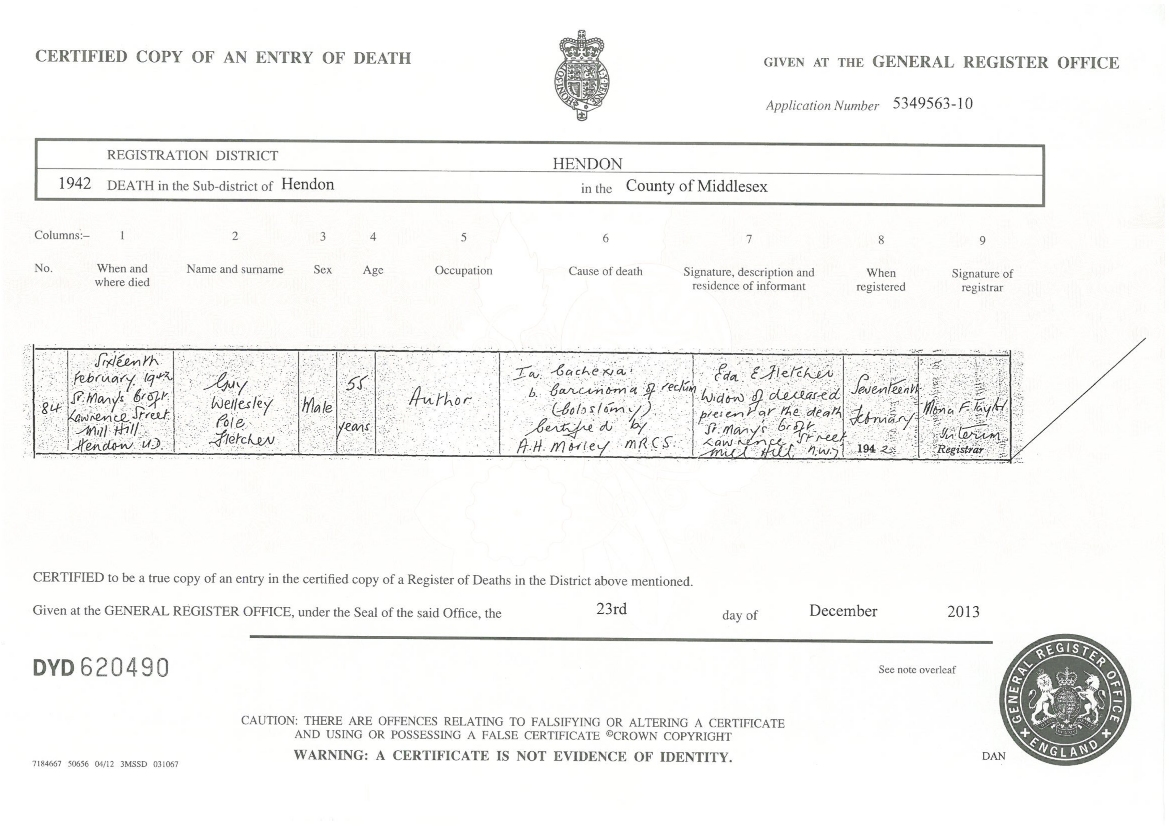 CERTIFIED COPY OF AN ENTRY OF DEATH
GIVEN AT THE GENERAL REGISTER OFFICE
Application Number 5349563-10
REGISTRATION DISTRICT HENDON
1942 DEATH in the Sub-district of Hendon in the County of Middlesex
Columns:– 1 2 3 4 5 6 7 8 9
No. When and where died Name and surname Sex Age Occupation Cause of death Signature, description and residence of informant When registered Signature of registrar
84
Sixteenth
February 1942
St. Marys Croft
Lawrence Street
Mill Hill
Hendon U.D.
Guy
Wellesley
Pole
Fletcher
Male
55
years
Author
Ia. Cachexia
b. Carcinoma of rectum
(Colostomy)
Certified by
A.H. Morley MRCS.
Eda E Fletcher
Widow of deceased
present at the death
St. Marys Croft
Lawrence Street
Mill Hill N.W.7
Seventeenth
February
1942
Mona F. Taylor
Interim
Registrar
CERTIFIED to be a true copy of an entry in the certified copy of a Register of Deaths in the District above mentioned.
Given at the GENERAL REGISTER OFFICE, under the Seal of the said Office, the 23rd day of December 2013
DYD 620490
See note overleaf
CAUTION: THERE ARE OFFENCES RELATING TO FALSIFYING OR ALTERING A CERTIFICATE
AND USING OR POSSESSING A FALSE CERTIFICATE ©CROWN COPYRIGHT
WARNING: A CERTIFICATE IS NOT EVIDENCE OF IDENTITY.
7184667 50656 04/12 3MSSD 031067
DAN
GENERAL REGISTER OFFICE
ENGLAND